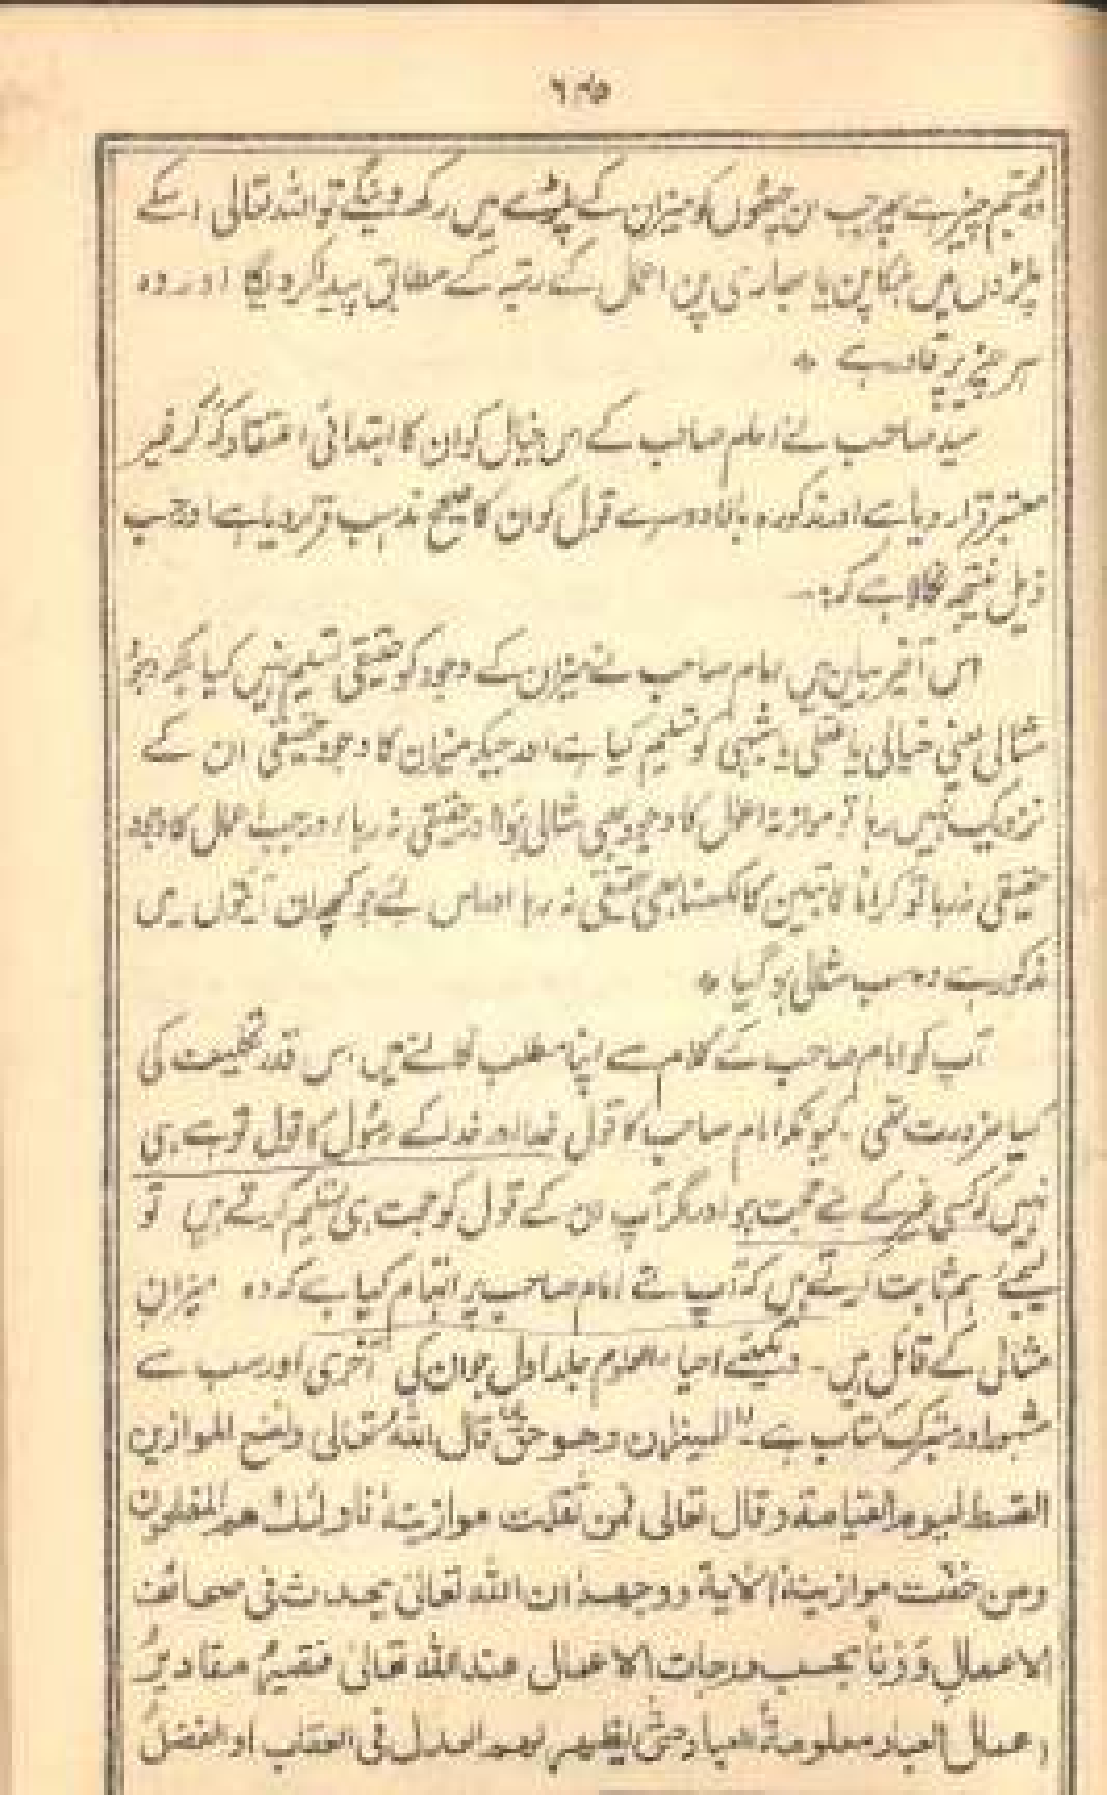 ۶۴۵
ذی جسم چیز ہے پھر جب ان چٹھوں کو میزان کے پلڑے میں رکھ دینگے تو اللہ تعالی اسکے
پلڑوں میں ہلکا پن یا بھاری پن اعمال کے رتبہ کے مطابق پیدا کردیگا اور وہ
ہر چیز پر قادر ہے ٭
سید صاحب نے امام صاحب کے اس خیال کو ان کا ابتدائی اعتقاد کہہ کر غیر
معتبر قرار دیا ہے اور مذکورہ بالا دوسرے قول کو ان کا صحیح مذہب قرار دیا ہے اور حسب
ذیل نتیجہ نکالا ہے کہ:۔
اس آخیر بیان میں امام صاحب نے میزان کے وجود کو حقیقی تسلیم نہیں کیا بلکہ وجود
مثالی یعنی خیالی یا عقلی یا شبہی کو تسلیم کیا ہے اور جبکہ میزان کا وجود حقیقی ان کے
نزدیک نہیں رہا تو موازنہ اعمال کا وجود بھی مثالی ہوا اور حقیقی نہ رہا اور جب اعمال کا وجود
حقیقی نہ رہا تو کراماً کاتبین کا لکھنا بھی حقیقی نہ رہا اور اس لئے جو کچھ ان آیتوں میں
مذکور ہے وہ سب مثالی ہو گیا ٭
آپ کو امام صاحب کے کلام سے اپنا مطلب نکالنے میں اس قدر تکلیف کی
کیا ضرورت تھی۔ کیونکہ امام صاحب کا قول خدا اور خدا کے رسول کا قول تو ہے ہی
نہیں کہ کسی غیر کے لئے حجت ہو اور اگر آپ ان کے قول کو حجت ہی تسلیم کرتے ہیں تو
لیجئے ہم ثابت کرتے ہیں کہ آپ نے امام صاحب پر اتہام کیا ہے کہ وہ میزان
مثالی کے قائل ہیں۔ دیکھئے احیاء العلوم جلد اول جو ان کی آخری اور سب سے
مشہور اور متبرک کتاب ہے۔" المیزان وھو حقٌ قال اللہُ تعالی ونضع الموازین
القسط لیوم القیامۃ وقال تعالی فمن ثقلت موازینہٗ فاولئک ھم المفلحون
ومن خفّت موازینہٗ الآیۃ ووجھہٗ ان اللہ تعالیٰ یحدث فی صحائف
الاعمال وَزناً بحسب درجات الاعمال عند اللہ تعالیٰ فتصیرُ مقادیرُ
اعمال العباد معلومۃً للعباد حتّٰی یظھر لھم العدل فی العقاب او الفضلُ